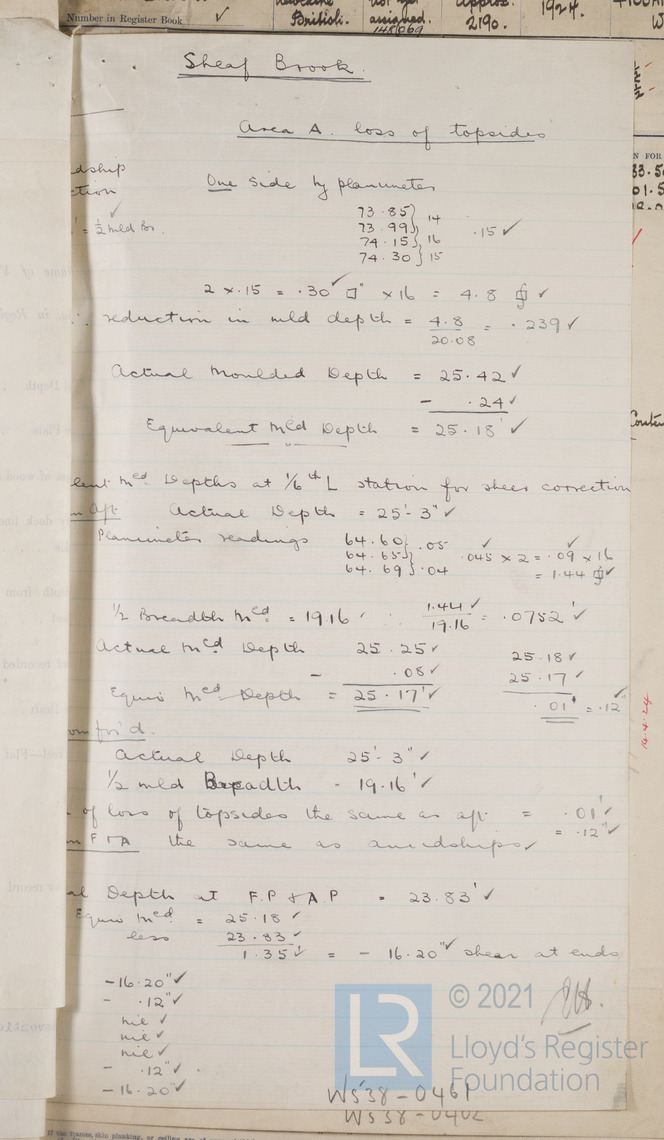 Number in Register Book ✓
British.
assigned.
148069
approx.
2190.
1924.
Sheaf Brook.
Area A. loss of topsides
dship
ction
One side by planimeter
= ½ mld Br.
73.85
73.99 } 14
74.15 } 16
74.30 } 15
.15 ✓
2 × .15 = .30 ✓ □" × 16 = 4.8 ✓
∴ reduction in mld depth = 4.8 / 20.08 = .239 ✓
Actual Moulded Depth = 25.42 ✓
- .24 ✓
Equivalent Mld Depth = 25.18' ✓
lent Mld Depths at 1/6th L station for sheer correction
m Aft Actual Depth = 25'-3" ✓
Planimeter readings
64.60 } .05
64.65
64.69 } .04
.045 × 2 = .09 × 16
= 1.44 ✓
½ Breadth Mld = 19.16 ∴ 1.44 / 19.16 = .0752' ✓
Actual Mld Depth 25.25 ✓
- .08 ✓
Equiv Mld Depth = 25.17' ✓
25.18 ✓
25.17 ✓
.01' = .12" ✓
om for'd.
Actual Depth 25'-3" ✓
½ mld Breadth - 19.16' ✓
of loss of topsides the same as aft = .01' ✓
= .12" ✓
m F & A the same as amidships ✓
al Depth at F.P & A.P = 23.83' ✓
Equiv Mld = 25.18 ✓
less 23.83 ✓
1.35' ✓ = - 16.20" ✓ shear at ends
-16.20" ✓
- .12" ✓
nil ✓
nil ✓
nil ✓
- .12" ✓
-16.20" ✓
© 2021
LR
Lloyd's Register
Foundation
WS38-0461
WS38-0462
14.4.24
If the frames, skin planking, or ceiling are of